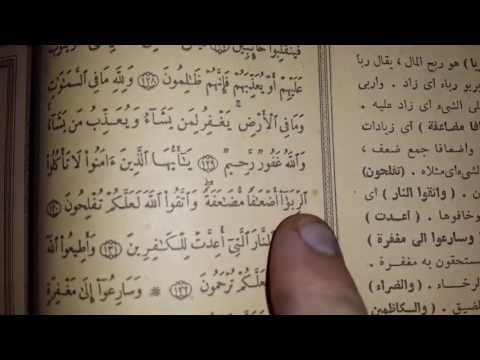 فَيَنقَلِبُوا۟ خَآئِبِينَ
عَلَيْهِمْ أَوْ يُعَذِّبَهُمْ فَإِنَّهُمْ ظَـٰلِمُونَ ١٢٨ وَلِلَّهِ مَا فِى ٱلسَّمَـٰوَٰتِ
وَمَا فِى ٱلْأَرْضِ ۚ يَغْفِرُ لِمَن يَشَآءُ وَيُعَذِّبُ مَن يَشَآءُ
وَٱللَّهُ غَفُورٌ رَّحِيمٌ ١٢٩ يَـٰٓأَيُّهَا ٱلَّذِينَ ءَامَنُوا۟ لَا تَأْكُلُوا۟
ٱلرِّبَوٰٓا۟ أَضْعَـٰفًا مُّضَـٰعَفَةً ۖ وَٱتَّقُوا۟ ٱللَّهَ لَعَلَّكُمْ تُفْلِحُونَ ١٣٠
ٱلنَّارَ ٱلَّتِىٓ أُعِدَّتْ لِلْكَـٰفِرِينَ ١٣١ وَأَطِيعُوا۟ ٱللَّهَ
لَعَلَّكُمْ تُرْحَمُونَ ١٣٢ ۞ وَسَارِعُوٓا۟ إِلَىٰ مَغْفِرَةٍ
) هو ربح المال ، يقال ربا
يربو رباء أى زاد . وأربى
على الشىء أى زاد عليه .
مضاعفة ) أى زيادات
وأضعافا جمع ضعف ،
مثلاه . ( تفلحون )
. ( واتقوا النار ) أى
خافوها . ( أعدت )
( وسارعوا الى مغفرة )
تستحقون به مغفرة
. ( والضراء )
الضيق . ( والكاظمين